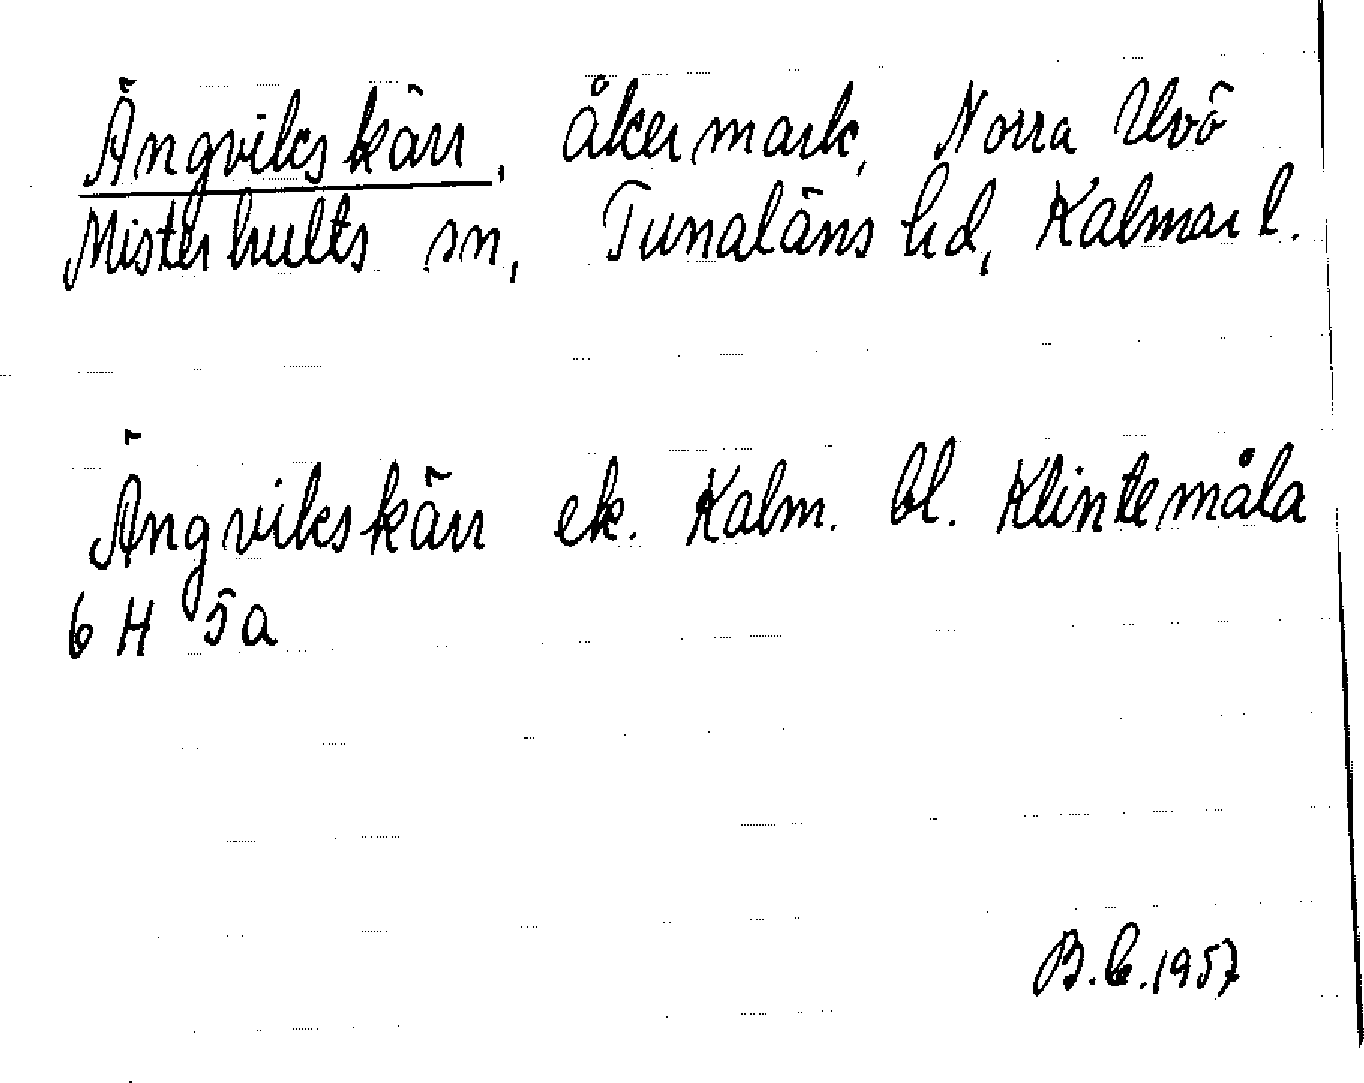 Ängvikskärr, åkermark, Norra Uvö
Misterhults sn, Tunaläns hd, Kalmar l.
Ängvikskärr ek. Kalm. bl. Klintemåla
6 H 5a
B.C.1957